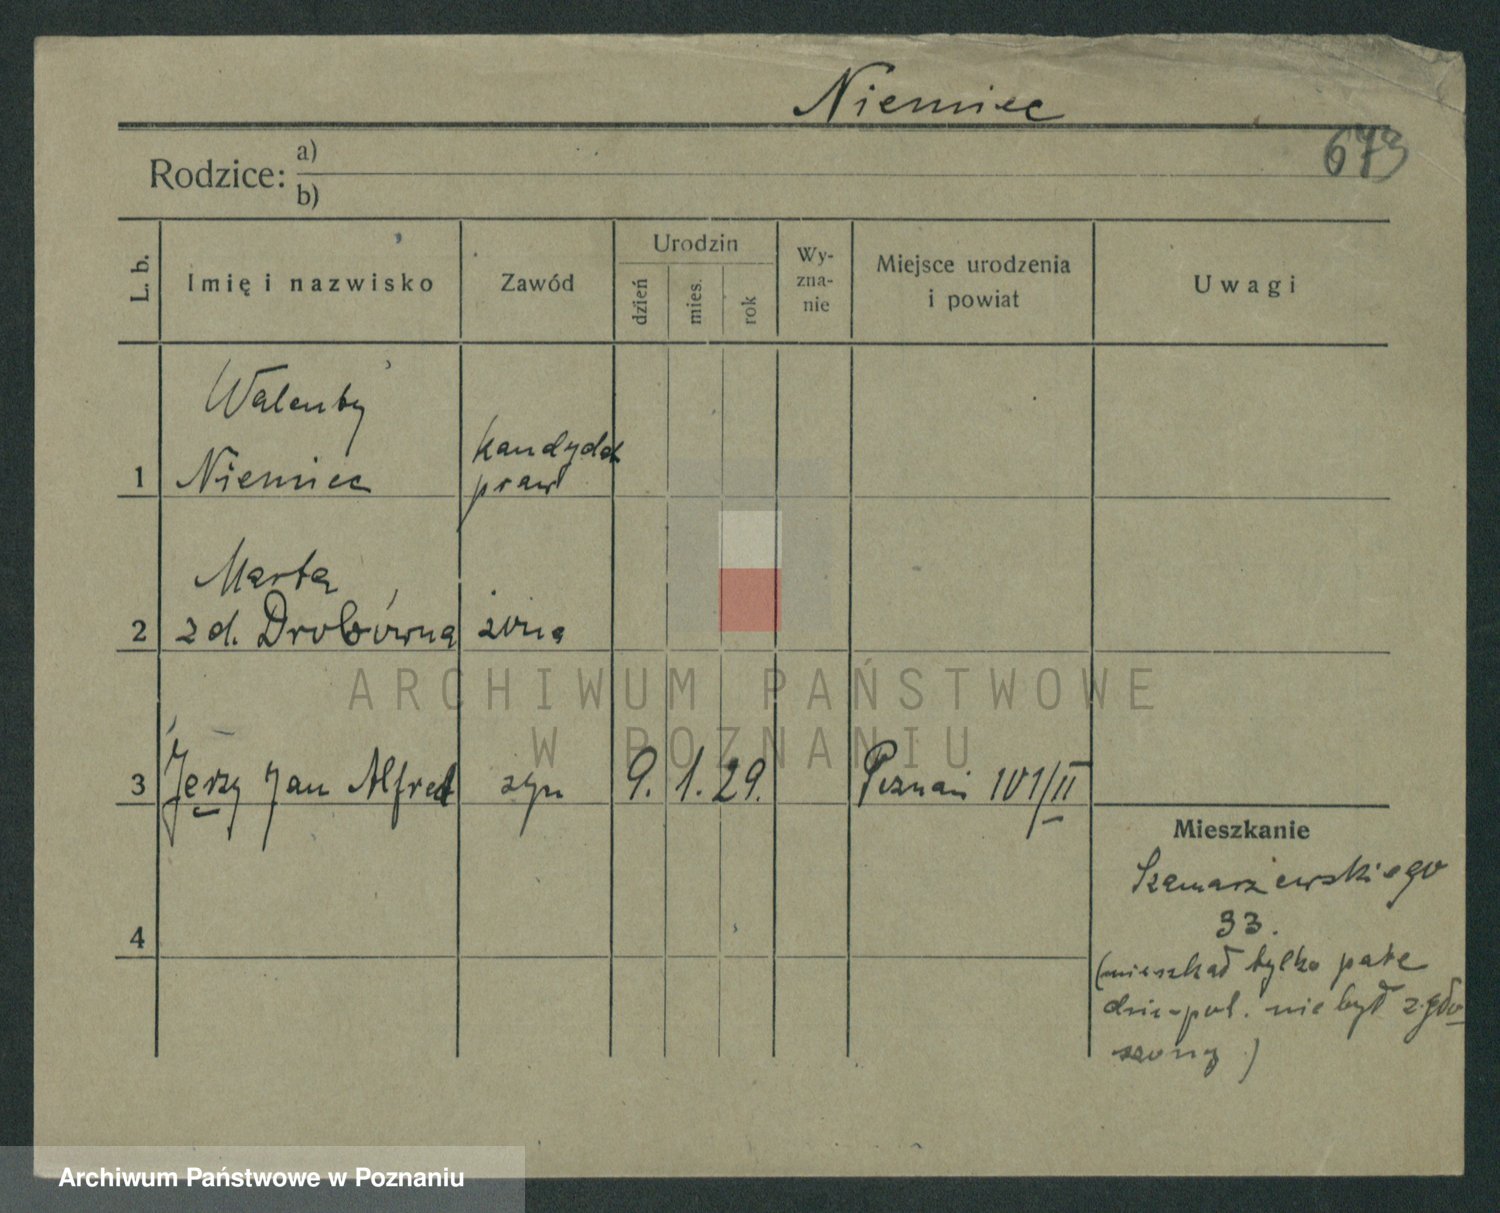 Niemiec
673
Rodzice: a)
b)
L. b.
Imię i nazwisko
Zawód
Urodzin
dzień
mies.
rok
Wy-
zna-
nie
Miejsce urodzenia
i powiat
Uwagi
Walenty
1 Niemiec
kandydat
praw
Marta
2 z d. Drobówna żona
ARCHIWUM PAŃSTWOWE
W POZNANIU
3 Jerzy Jan Alfred syn 9. 1. 29. Poznań 101/II
Mieszkanie
Szamarzewskiego
4
33.
(mieszkał tylko parę
dni - pol. nie był zgło-
szony)
Archiwum Państwowe w Poznaniu